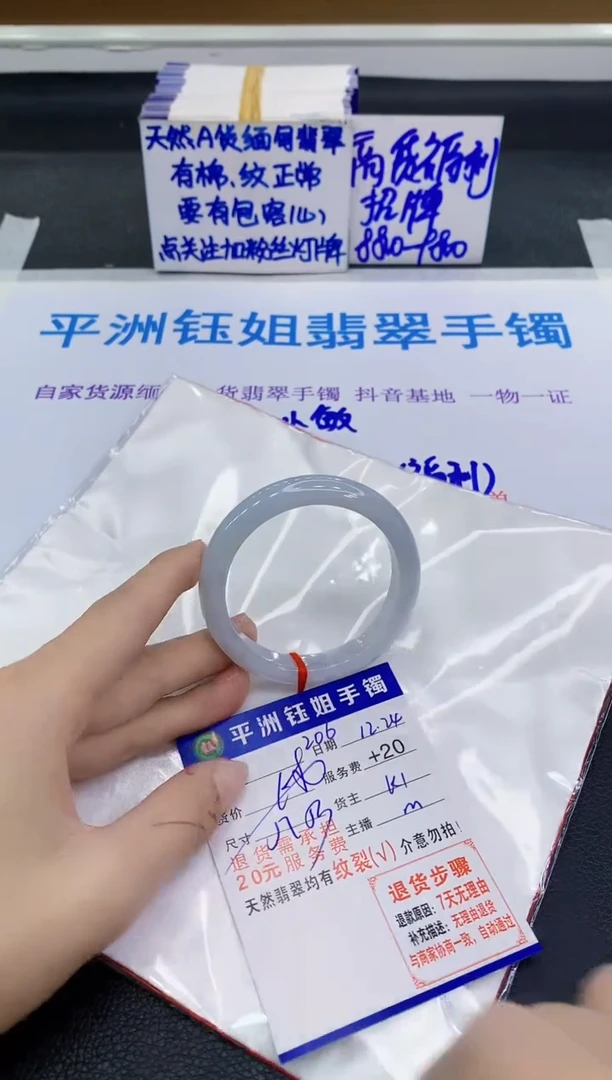 天然A货缅甸翡翠
有棉、纹正常
要有包容心
点关注加粉丝灯牌
招牌
平洲钰姐翡翠手镯
自家货源缅 货翡翠手镯 抖音基地 一物一证
小敏
平洲钰姐手镯
206
日期 12.24
服务费 +20
货价
货主 K1
尺寸
主播 m
退货需承担
20元服务费
天然翡翠均有纹裂(√) 介意勿拍!
退货步骤
退款原因: 7天无理由
补充描述: 无理由退货
与商家协商一致, 自动通过